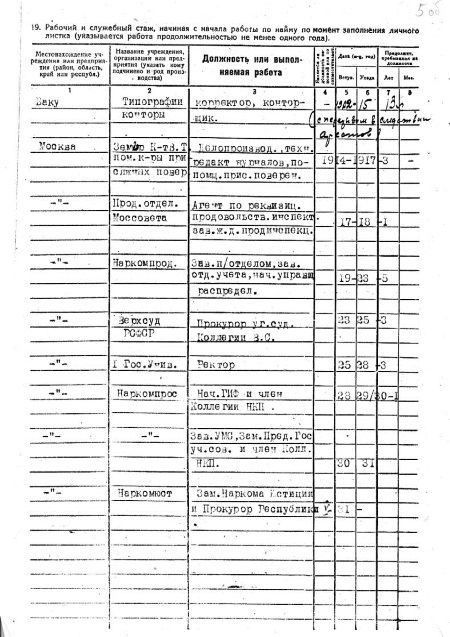 19. Рабочий и служебный стаж, начиная с начала работы по найму по момент заполнения личного
листка (указывается работа продолжительностью не менее одного года).
Местонахождение учреждения или предприятия (район, область, край или республ.)
Название учреждения, организации или предприятия (указать кому подчинено и род производства)
Должность или выполняемая работа
Дата (м-ц, год)
Вступ.
Ухода
Лет
Мес.
1 2 3 4 5 6 7 8
Баку Типографии корректор, контор- 15
конторы щик.
Москва Делопроизвод.,техн.
редакт журналов,по- 1914-1917-3 -
помощ.прис.поверен.
-"- Прод.отдел. Агент по реквизиц.
Моссовета продовольств.инспект.
зав.ж.д.продинспекц. 17-18 -1
-"- Наркомпрод. Зав.п/отделом,зав.
отд.учета,нач.управл
распредел. 19-23 -5
-"- Верхсуд Прокурор уг.суд. 23 25 -3
РСФСР Коллегии В.С.
-"- I Гос.Унив. Ректор 25 28 -3
-"- Наркомпрос Нач.ГИФ и член 28 29/30-1
Коллегии НКП .
-"- -"- Зав.УМС,Зам.Пред.Гос
уч.сов. и член Колл.
НКП. 30 31
-"- Наркомюст Зам.Наркома Юстиции
и Прокурор Республики 31 -